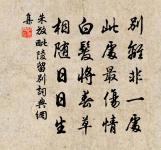 别離非一處
此處最傷情
白髮將春草
相隨日日生
朱放毗陵留别詞典網
集